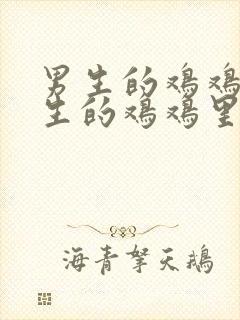 男生的鸡鸡
生的鸡鸡里
海青拏天鹅